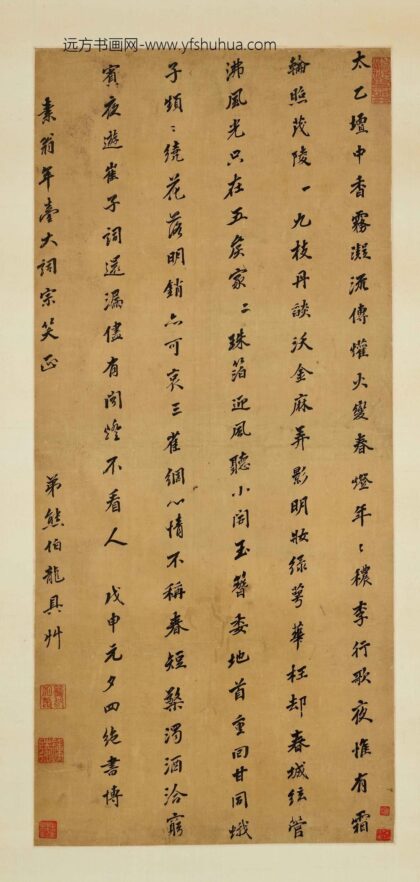 远方书画网-www.yfshuhua.com
太乙壇中香霧凝流傳爟火變春燈年〻穠李行歌夜惟有霜
輪照茂陵 一 九枝丹燄沃金麻弄影明妝綠萼華枉却春城絃管
沸風光只在五矦家 二 珠箔迎風聽小閤玉簪委地首重回甘同蛾
子頻〻繞花落明銷亦可哀 三 雀綱心情不稱春短檠濁酒洽窮
賓夜遊崔子詞還漏儘有閒燈不看人 戊申元夕四絕書博
素翁年臺大詞宗笑正 弟熊伯龍具艸